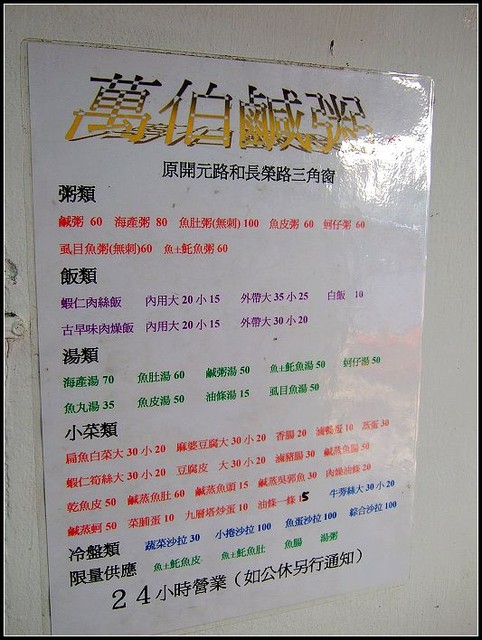 萬伯鹹粥
原開元路和長榮路三角窗
粥類
鹹粥 60 海產粥 80 魚肚粥(無刺) 100 魚皮粥 60 蚵仔粥 60
虱目魚粥(無刺)60 魚土魠魚粥 60
飯類
蝦仁肉絲飯 內用大 20 小 15 外帶大 35 小 25 白飯 10
古早味肉燥飯 內用大 20 小 15 外帶大 30 小 20
湯類
海產湯 70 魚肚湯 60 鹹粥湯 50 魚土魠魚湯 50 蚵仔湯 50
魚丸湯 35 魚皮湯 50 油條湯 15 虱目魚湯 50
小菜類
扁魚白菜大 30 小 20 麻婆豆腐大 30 小 20 香腸 20 滷鴨蛋 10 蒸蛋 30
蝦仁筍絲大 30 小 20 豆腐皮 大 30 小 20 滷豬腸 30 鹹蒸魚腸 50
乾魚皮 50 鹹蒸魚肚 60 鹹蒸魚頭 15 鹹蒸吳郭魚 30 肉燥油條 20
鹹蒸蚵 50 菜脯蛋 10 九層塔炒蛋 10 油條一條 15 牛蒡絲大 30 小 20
冷盤類 蔬菜沙拉 30 小捲沙拉 100 魚蛋沙拉 100 綜合沙拉 100
限量供應 魚土魠魚皮 魚土魠魚肚 魚腸 湯粥
24小時營業（如公休另行通知）